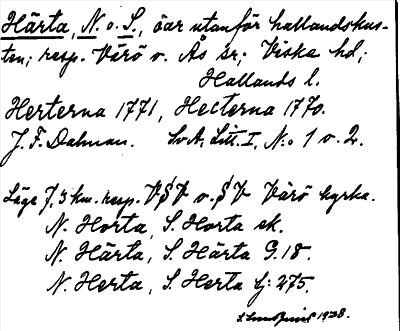 Härta, N. o. S., öar utanför hallandskus-
ten; resp. Värö o. Ås sr; Viske hd;
Hallands l.
Herterna 1771, Hecterna 1770.
J. F. Dalman. Sv A, Litt. I, N:o 1 o. 2.
Läge 7,3 km. resp. VSV o. SV Värö kyrka.
N. Horta, S. Horta ek.
N. Härta, S. Härta G. 18.
N. Herta, S. Herta Lj: 275.
1928.